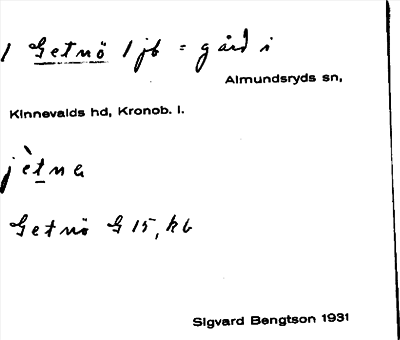 1 Getnö 1 jb = gård i
Almundsryds sn,
Kinnevalds hd, Kronob. l.
jètna
Getnö G 15, kb
Sigvard Bengtson 1931